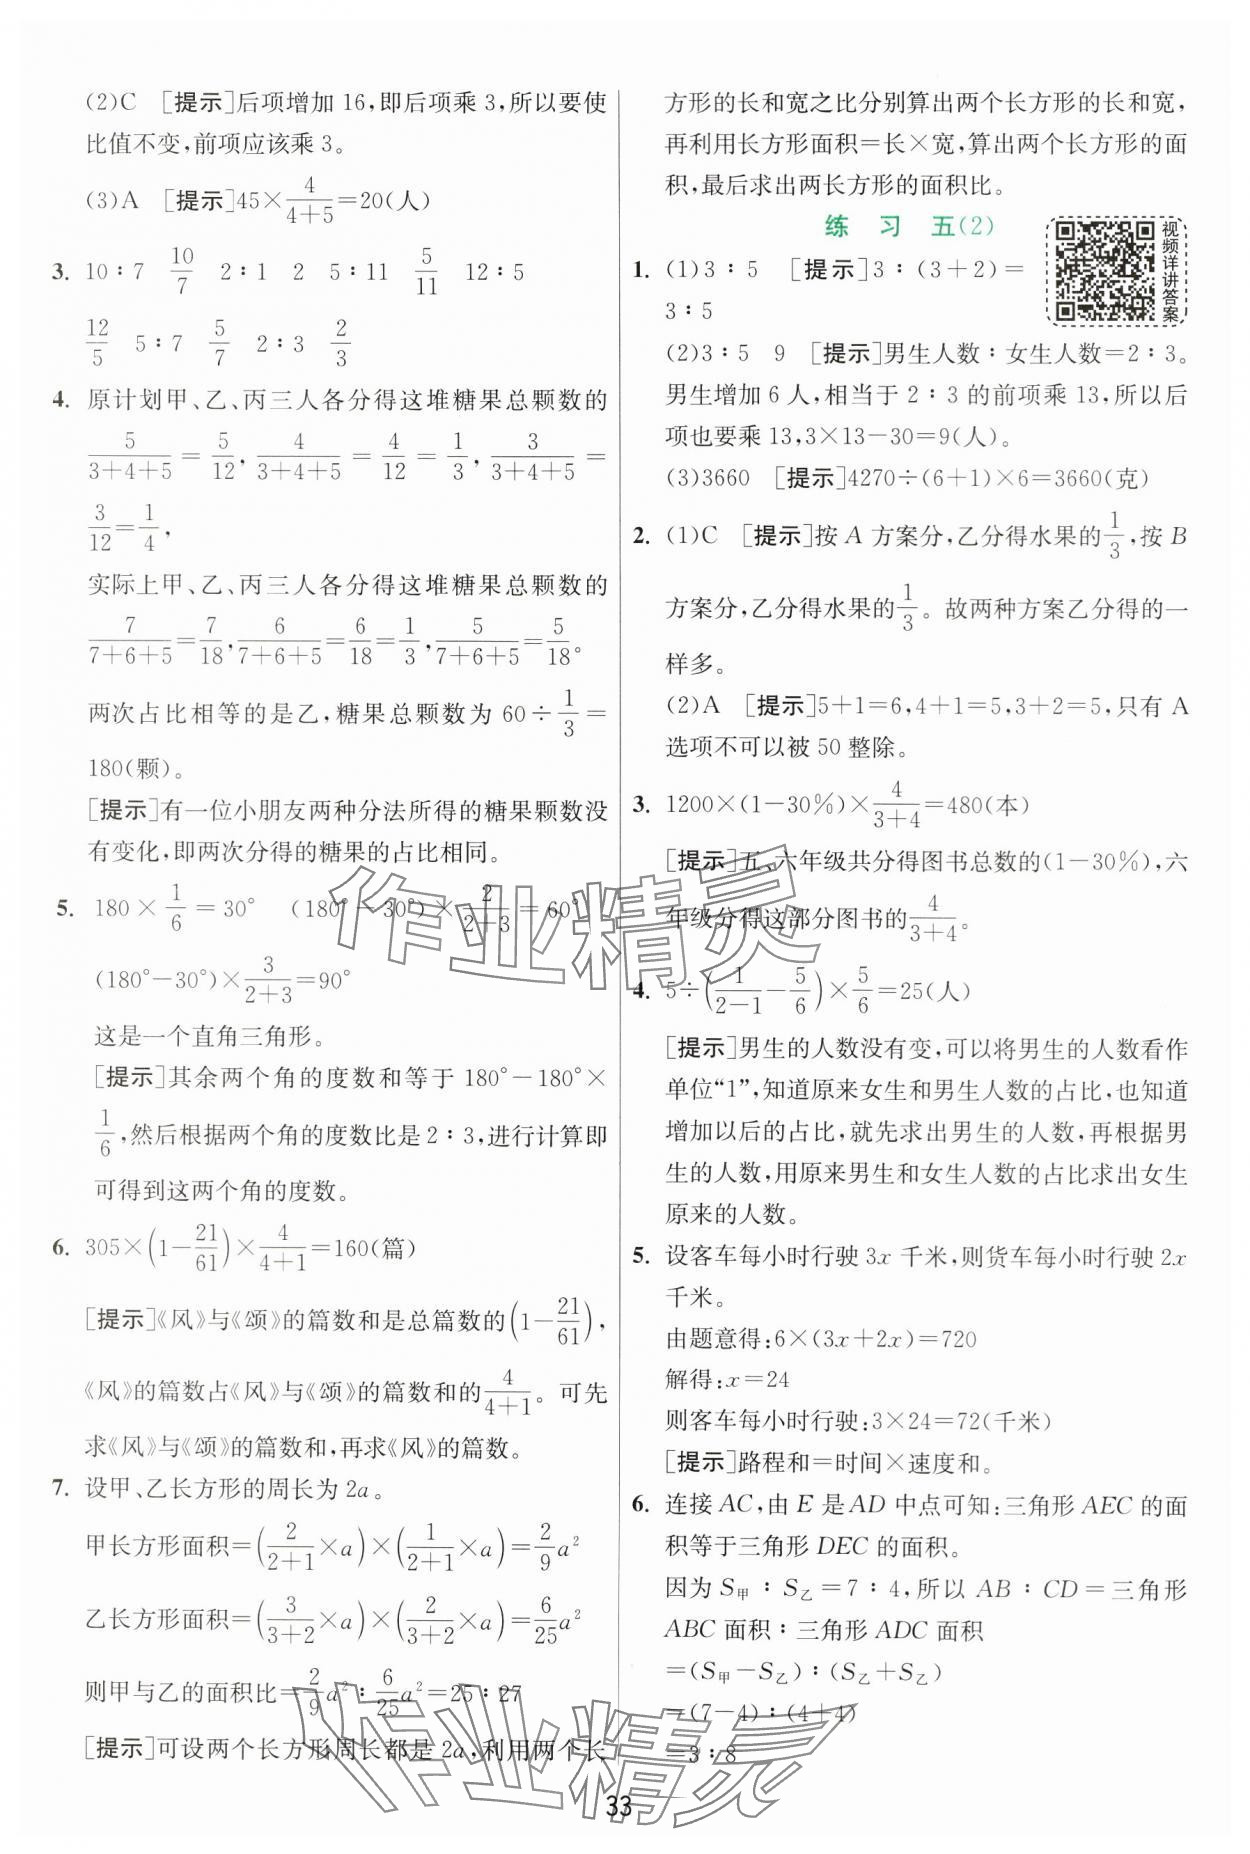 (2)C [提示]后项增加 16,即后项乘 3,所以要使
比值不变,前项应该乘 3。
(3)A [提示]45×4/(4+5)=20(人)
3. 10∶7 10/7 2∶1 2 5∶11 5/11 12∶5
12/5 5∶7 5/7 2∶3 2/3
4. 原计划甲、乙、丙三人各分得这堆糖果总颗数的
5/(3+4+5)=5/12,4/(3+4+5)=4/12=1/3,3/(3+4+5)=
3/12=1/4,
实际上甲、乙、丙三人各分得这堆糖果总颗数的
7/(7+6+5)=7/18,6/(7+6+5)=6/18=1/3,5/(7+6+5)=5/18。
两次占比相等的是乙,糖果总颗数为 60÷1/3=
180(颗)。
[提示]有一位小朋友两种分法所得的糖果颗数没
有变化,即两次分得的糖果的占比相同。
5. 180×1/6=30° (180°-30°)×2/(2+3)=60°
(180°-30°)×3/(2+3)=90°
这是一个直角三角形。
[提示]其余两个角的度数和等于 180°-180°×
1/6,然后根据两个角的度数比是 2∶3,进行计算即
可得到这两个角的度数。
6. 305×(1-21/61)×4/(4+1)=160(篇)
[提示]《风》与《颂》的篇数和是总篇数的(1-21/61),
《风》的篇数占《风》与《颂》的篇数和的4/(4+1)。可先
求《风》与《颂》的篇数和,再求《风》的篇数。
7. 设甲、乙长方形的周长为 2a。
甲长方形面积=(2/(2+1)×a)×(1/(2+1)×a)=2/9a²
乙长方形面积=(3/(3+2)×a)×(2/(3+2)×a)=6/25a²
则甲与乙的面积比=2/9a²∶6/25a²=25∶27
[提示]可设两个长方形周长都是 2a,利用两个长
方形的长和宽之比分别算出两个长方形的长和宽,
再利用长方形面积=长×宽,算出两个长方形的面
积,最后求出两长方形的面积比。
练 习 五(2)
视频详讲答案
1. (1)3∶5 [提示]3∶(3+2)=
3∶5
(2)3∶5 9 [提示]男生人数∶女生人数=2∶3。
男生增加 6 人,相当于 2∶3 的前项乘 13,所以后
项也要乘 13,3×13-30=9(人)。
(3)3660 [提示]4270÷(6+1)×6=3660(克)
2. (1)C [提示]按 A 方案分,乙分得水果的1/3,按 B
方案分,乙分得水果的1/3。故两种方案乙分得的一
样多。
(2)A [提示]5+1=6,4+1=5,3+2=5,只有 A
选项不可以被 50 整除。
3. 1200×(1-30%)×4/(3+4)=480(本)
[提示]五、六年级共分得图书总数的(1-30%),六
年级分得这部分图书的4/(3+4)。
4. 5÷(1/(2-1)-5/6)×5/6=25(人)
[提示]男生的人数没有变,可以将男生的人数看作
单位“1”,知道原来女生和男生人数的占比,也知道
增加以后的占比,就先求出男生的人数,再根据男
生的人数,用原来男生和女生人数的占比求出女生
原来的人数。
5. 设客车每小时行驶 3x 千米,则货车每小时行驶 2x
千米。
由题意得:6×(3x+2x)=720
解得:x=24
则客车每小时行驶:3×24=72(千米)
[提示]路程和=时间×速度和。
6. 连接 AC,由 E 是 AD 中点可知:三角形 AEC 的面
积等于三角形 DEC 的面积。
因为 S甲∶S乙=7∶4,所以 AB∶CD=三角形
ABC 面积∶三角形 ADC 面积
=(S甲-S乙)∶(S乙+S乙)
=(7-4)∶(4+4)
=3∶8
作业精灵
作业精灵
33